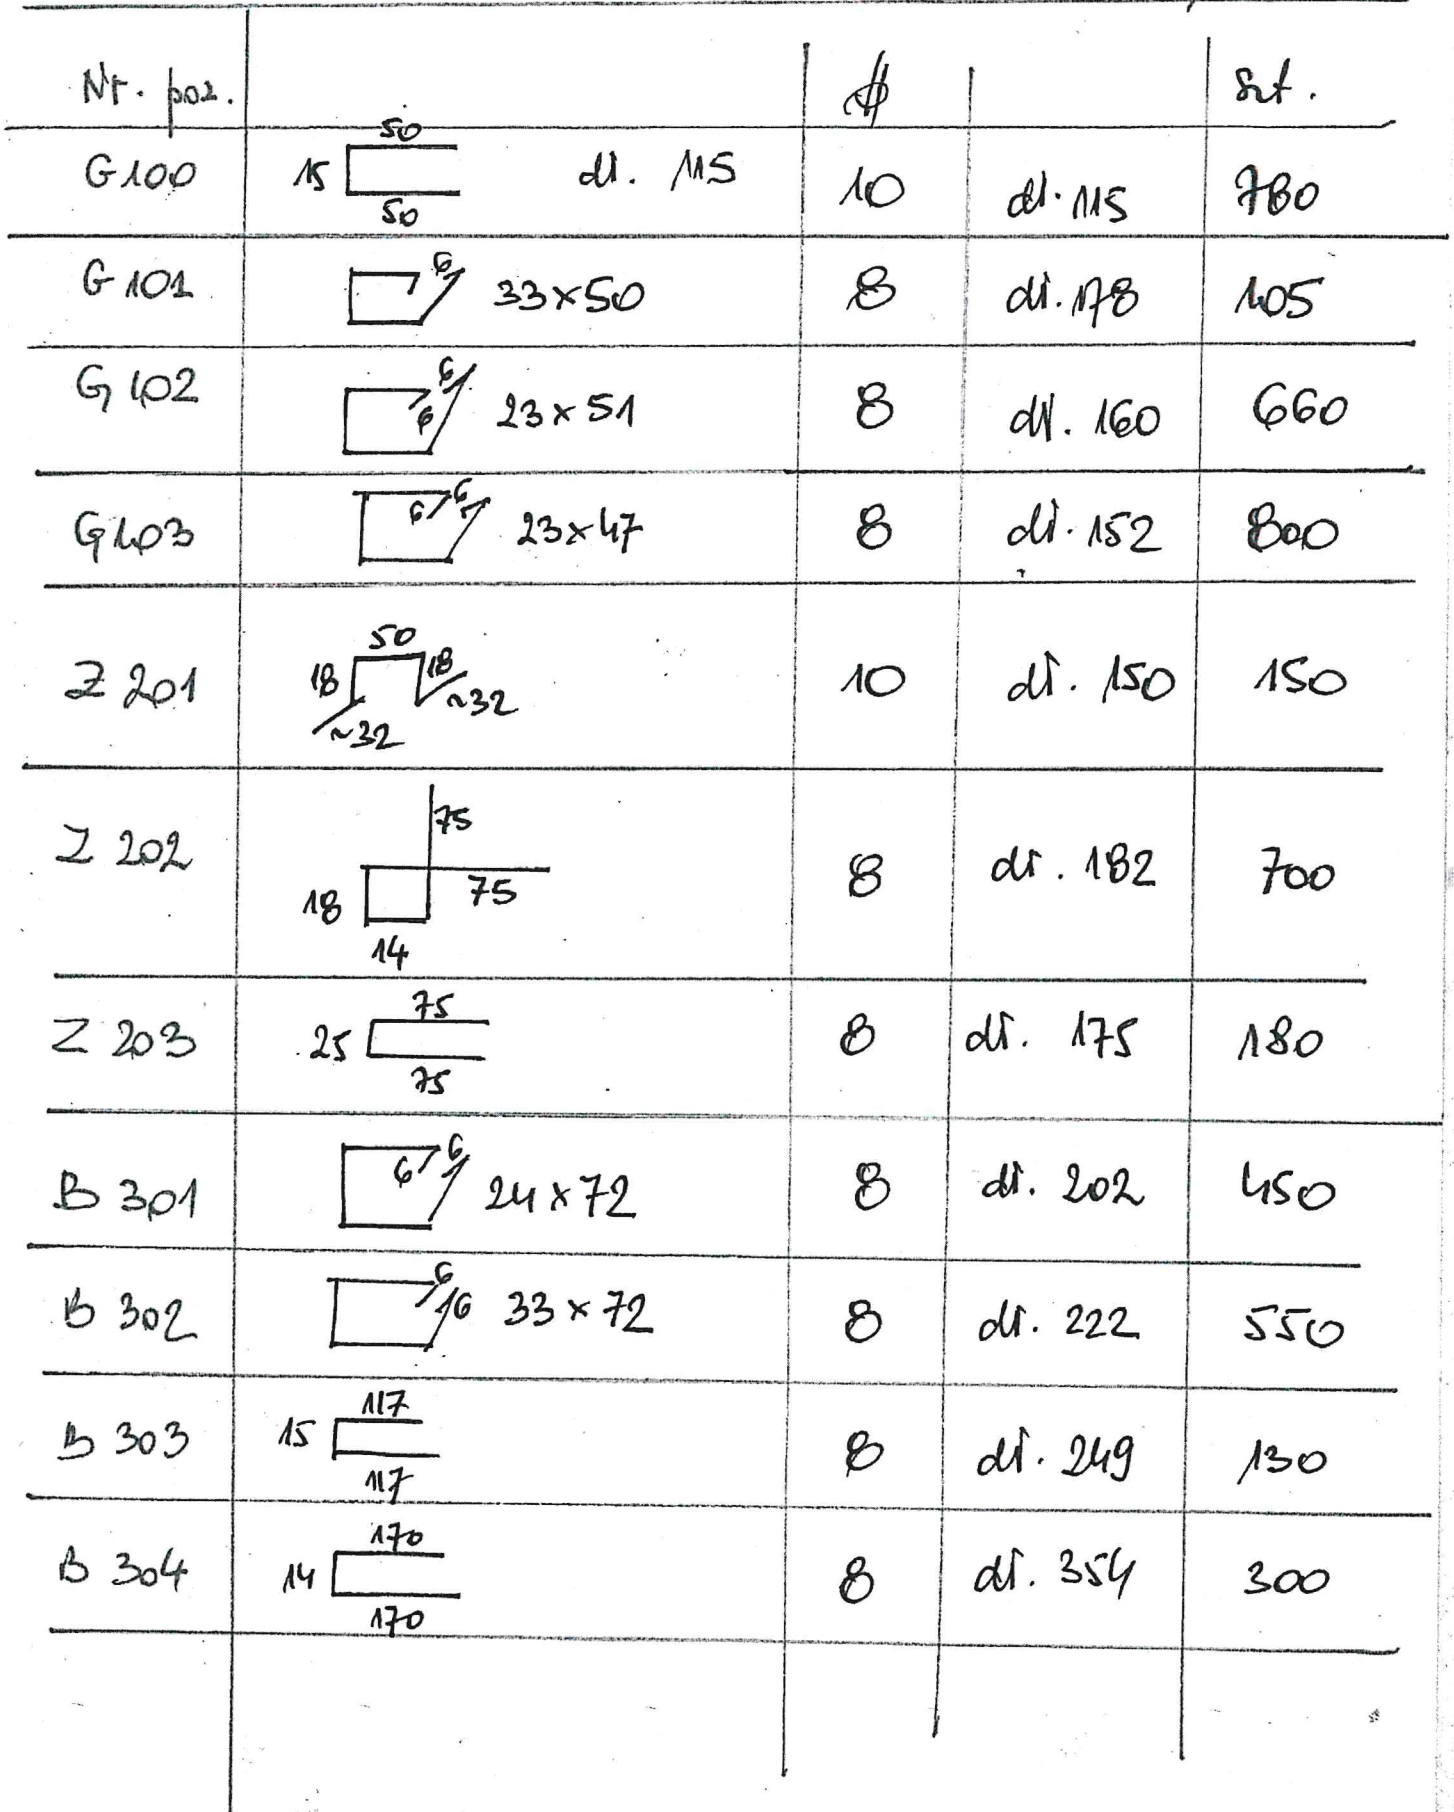 Nr. poz. ϕ szt.
G100 50 15 50 dł. 115 10 dł. 115 780
G101 6 33x50 8 dł. 178 105
G102 6 6 23x51 8 dł. 160 660
G103 6 6 23x47 8 dł. 152 800
Z 201 50 18 18 ~32 ~32 10 dł. 150 150
Z 202 75 75 18 14 8 dł. 182 700
Z 203 75 25 75 8 dł. 175 180
B 301 6 6 24x72 8 dł. 202 450
B 302 6 6 33x72 8 dł. 222 550
B 303 117 15 117 8 dł. 249 130
B 304 170 14 170 8 dł. 354 300